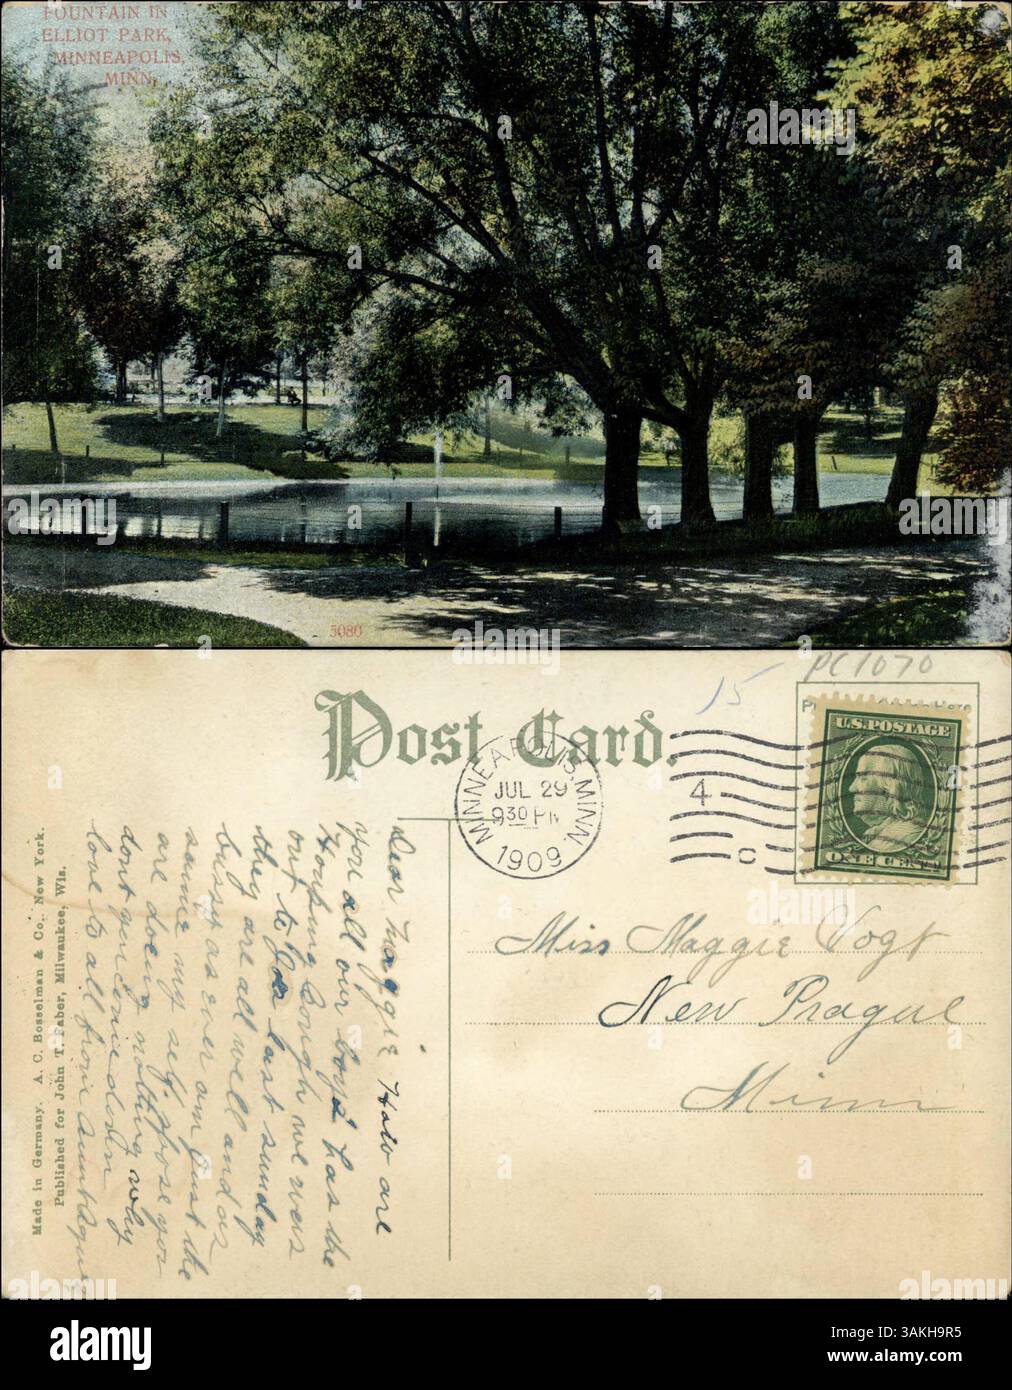 FOUNTAIN IN
ELLIOT PARK,
MINNEAPOLIS,
MINN.
5080
15
PC1070
Post Card.
MINNEAPOLIS, MINN.
JUL 29
9 30 PM
1909
4
C
U.S. POSTAGE
ONE CENT
Miss Maggie Vogt
New Prague
Minn
Dear Maggie How are
you all our boys has the
Hooping Cough we wers
out to Jos last sunday
they are all well and as
busy as ever am just the
same my self. spose you
are doeing nothing why
dont you come down
love to all from Aunt
Made in Germany. A. C. Bosselman & Co., New York.
Published for John T. Faber, Milwaukee, Wis.
alamy
Image ID: 2AKH9R5
www.alamy.com